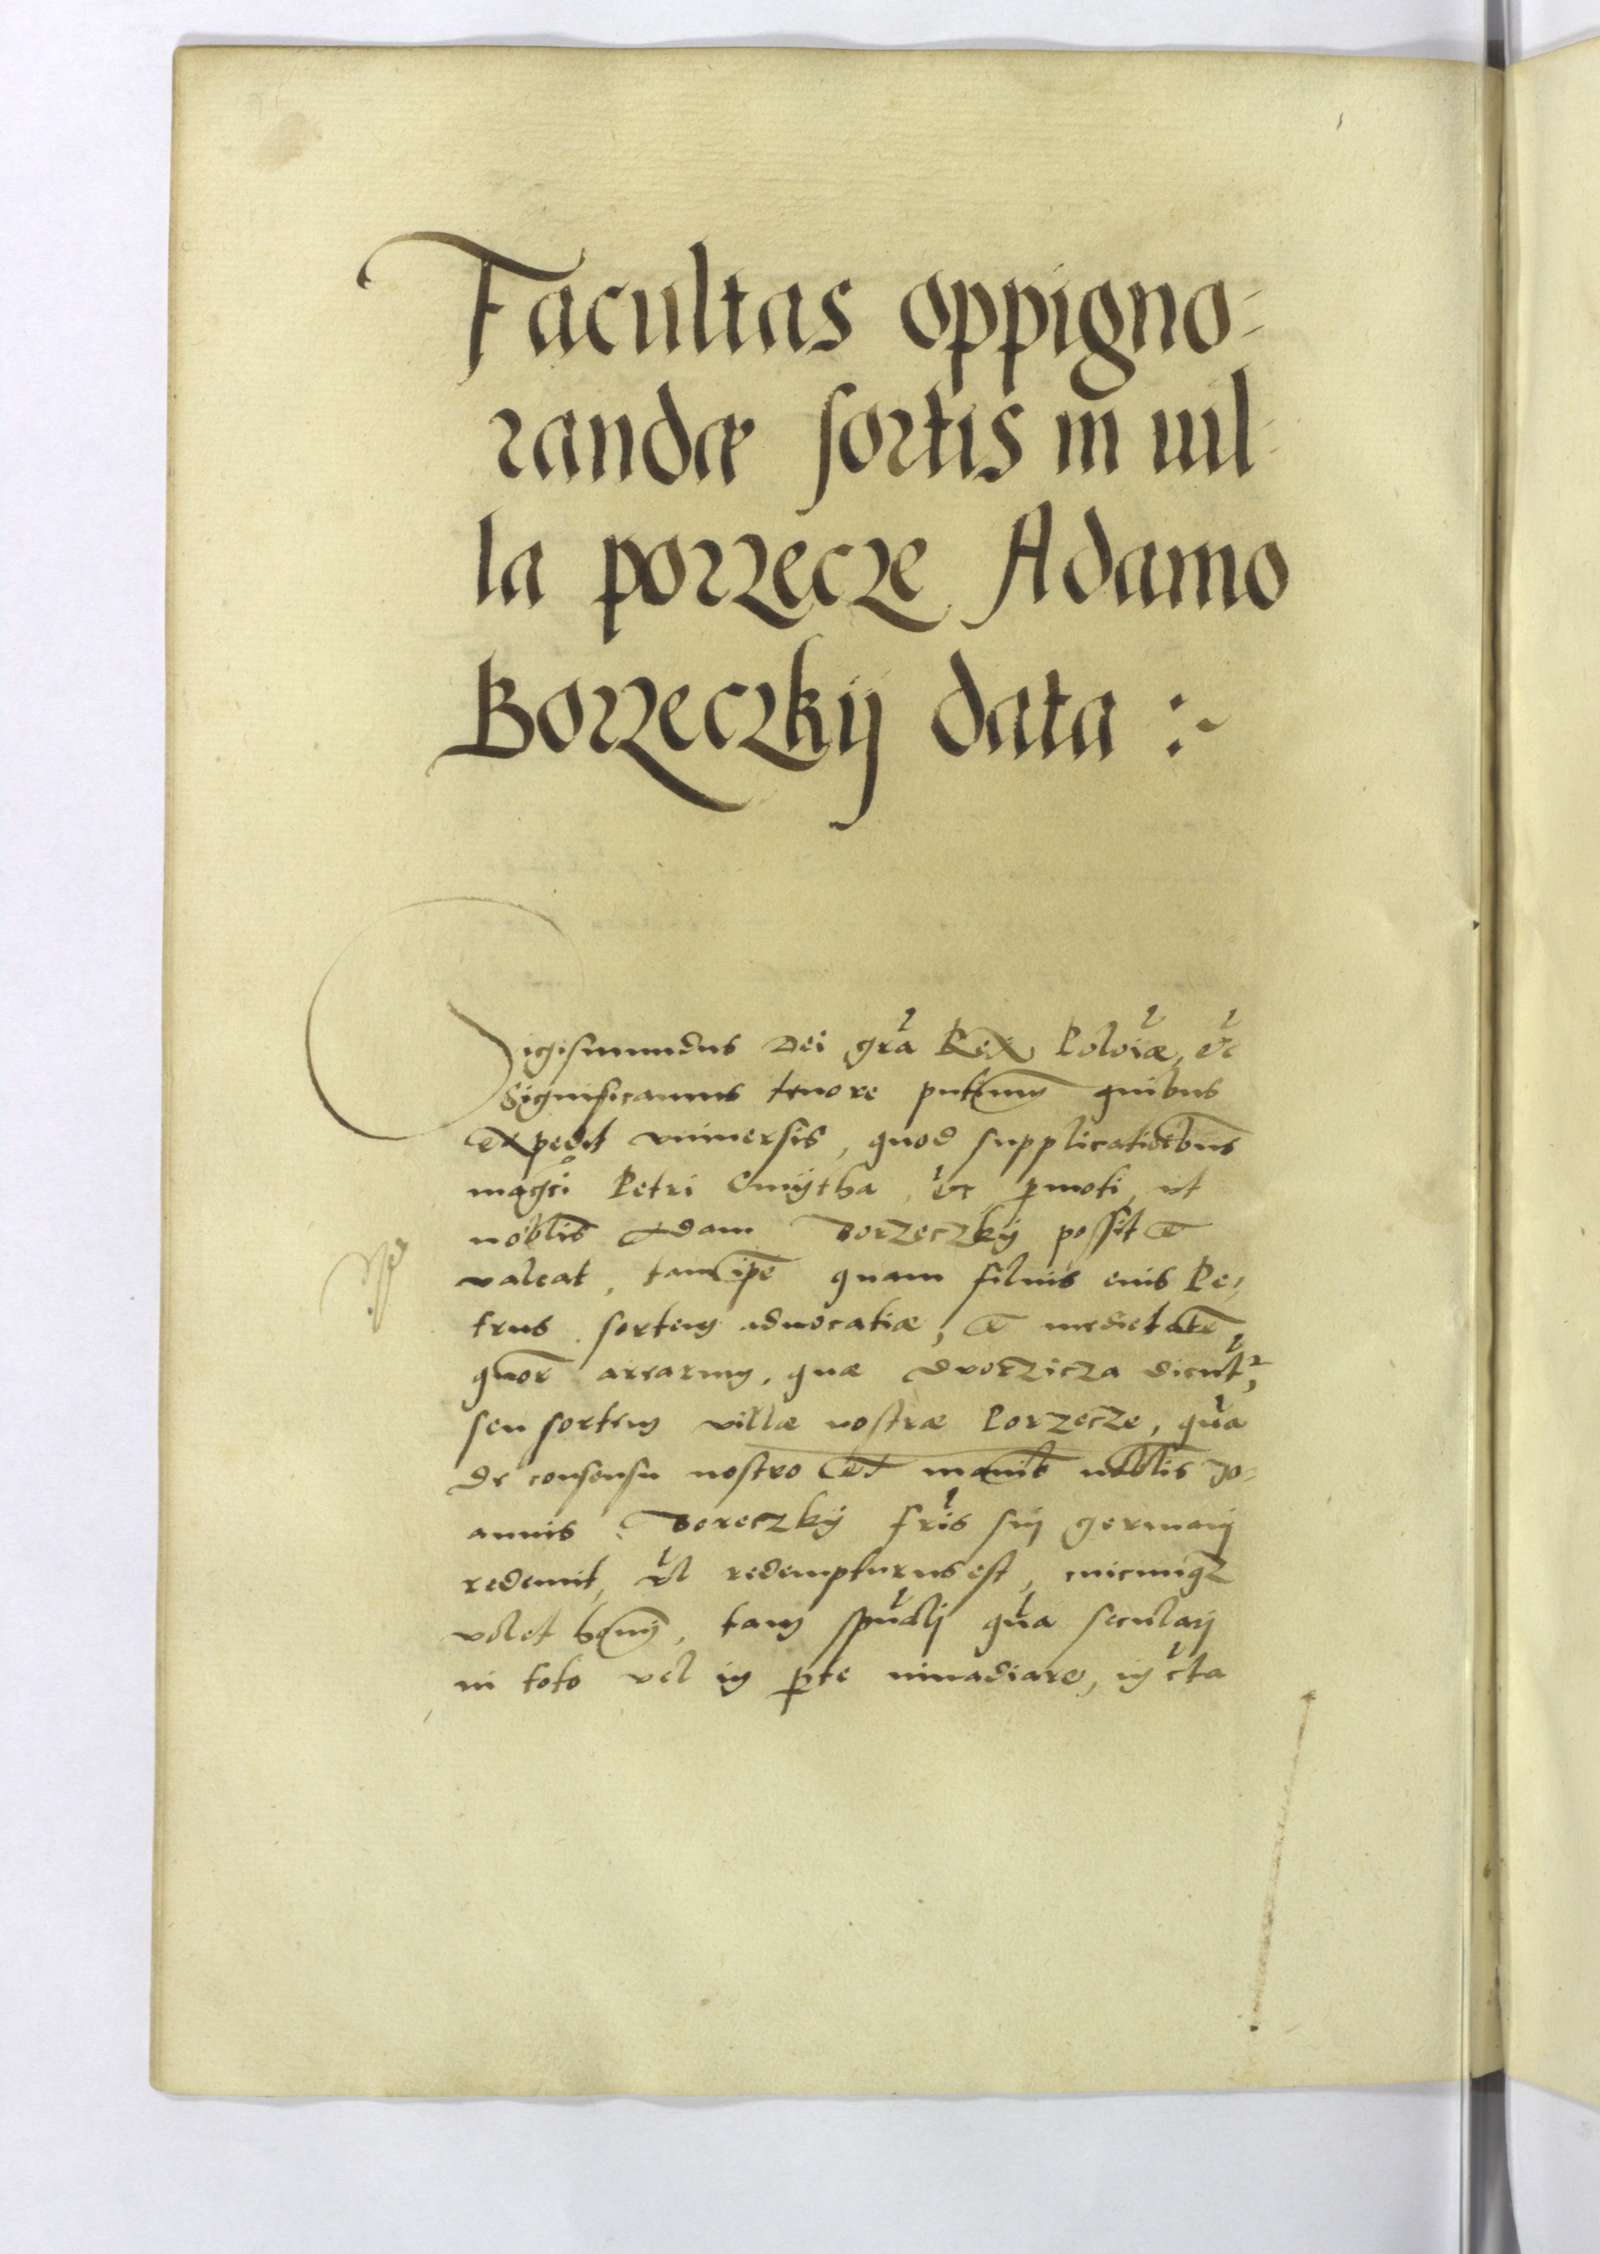 Facultas oppigno-
randæ sortis in uil-
la porzecze Adamo
Borzeczkij data :~
Sigismundus Dei gra Rex Poloiæ, etc
Significamus tenore pntium quibus
expedit vniuersis, quod supplicatioibus
magci Petri Cmÿtha, etc pmoti, ut
noblis Adam Borzeczkÿ possit et
valeat, tam ipe quam filius eius Pe-
trus sortem aduocatiæ, et medietate
quor arearum, quæ dworzicza dicut,
seu sortem villæ nostræ Porzecze, qua
de consensu nostro de manib noblis Jo-
annis Boreczkÿ fris sui germani
redemit, vl redempturus est, cuicunqz
volet homini, tam spuali qua seculari
in toto vel in pte inuadiare, in cta